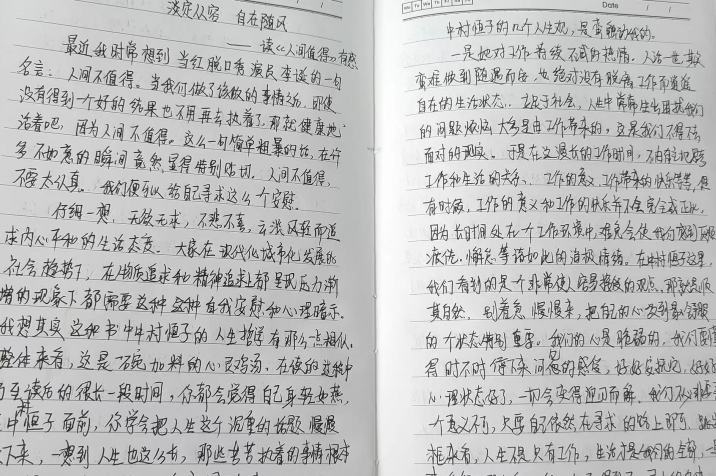 淡定从容 自在随风
——读《人间值得》有感
最近我时常想到当红脱口秀演员李诞的一句
名言：人间不值得。当我们做了该做的事情之后，即使
没有得到一个好的结果也不用再去执着了，那就健康地
活着吧，因为人间不值得。这么一句简单粗暴的话，在许
多不如意的瞬间竟然显得特别贴切。人间不值得，
不要太认真。我们便可以给自己寻求这么一个安慰。
仔细一想，无欲无求，不悲不喜，云淡风轻而追
求内心平和的生活态度。大家在现代化城市化发展的
社会趋势下，在物质追求和精神追求上都呈现压力渐
增的现象下都需要这种这种自我安慰和心理暗示。
我想其实这和书中中村恒子的人生哲学有那么点相似。
整体来看，这是一碗加料的心灵鸡汤。在读的过程中
乃至读后的很长一段时间，你都会觉得自己身轻如燕，
中村恒子面前，你学会把人生这个沉重的话题慢慢
下来，一想到人生也这么长，那些苦苦执着的事情根本
Date
中村恒子的几个人生观，是蛮触动我的。
一是她对工作持续不减的热情。人活一世，其实
蛮难做到随遇而安，也绝对没有脱离工作而逍遥
自在的生活状态。立足于社会，人生中常常生出困扰我们
的问题烦恼大多是由工作带来的，这是我们不得不去
面对的现实。于是在这漫长的工作时间，不由自主地忽略
工作和生活的关系、工作的意义、工作带来的快乐等等，但
有时候，工作的意义和工作的快乐并不会完全成正比，
因为长时间处在一个工作环境中，难免会使我们感到
疲倦、懈怠等诸如此类的消极情绪。在中村恒子这里，
我们看到的是一个非常使人容易接受的观点，那就是顺
其自然，别着急慢慢来，把自己的心安到最合适
的个状态特别重要。我们的心是脆弱的，我们要懂
得时不时停下来问问的感受，好好安抚它，好好
心理状态好了，一切会变得迎刃而解。我们不必非要
一个意义不可，只要自己依然在寻求的路上即可。
来看，人生不是只有工作，生活才是我们的全部，